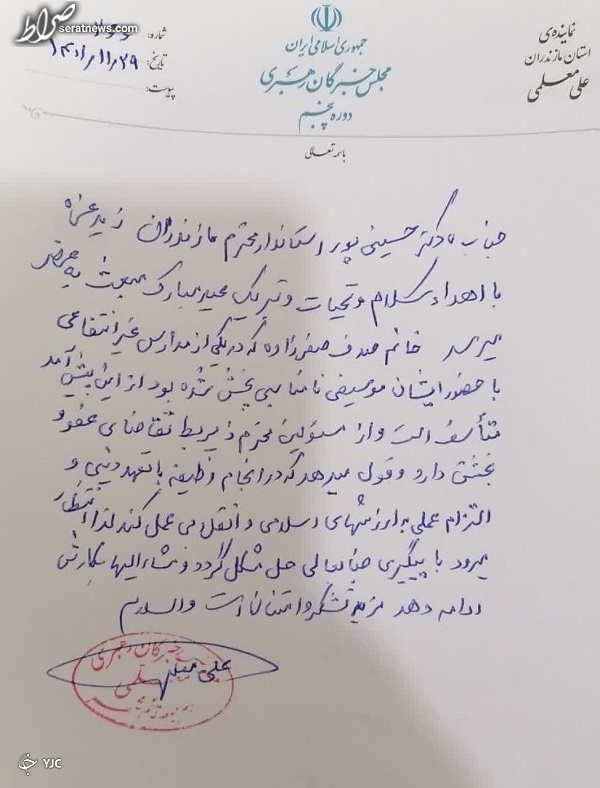 صراط
seratnews.com
نماینده‌ی
استان مازندران
علی معلمی
جمهوری اسلامی ایران
مجلس خبرگان رهبری
دوره پنجم
شماره:
تاریخ: ۱۴۰۰/۱۱/۲۹
پیوست:
باسمه تعالی
جناب دکتر حسینی پور استاندار محترم مازندران زید عزه
با اهداء سلام و تحیات و تبریک عید مبارک مبعث به عرض
میرسد خانم صدف صفرزاده که در یکی از مدارس غیر انتفاعی
با حضور ایشان موسیقی نامناسبی پخش شده بود از این پیش آمد
متأسف است و از مسئولین محترم ذیربط تقاضای عفو و
بخشش دارد و قول میدهد که در انجام وظیفه با تعهد دینی و
التزام عملی به ارزشهای اسلامی و انقلابی عمل کند لذا انتظار
میرود با پیگیری جنابعالی حل مشکل گردد و مشارالیها بکارش
ادامه دهد مزید تشکر و امتنان است والسلام
خبرگان رهبری
علی معلمی
YJC